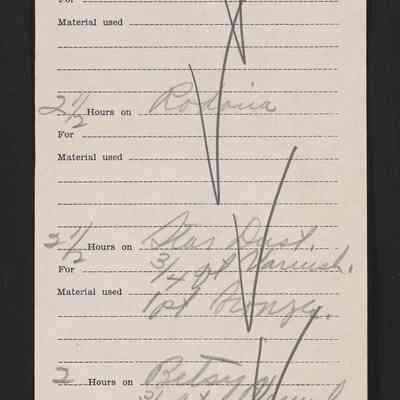 For
Material used
2 1/2 Hours on Rodonia
For
Material used
2 1/2 Hours on Star Dust.
For 3/4 qt Varnish.
Material used 1 pt Bronze.
2 Hours on Betsy